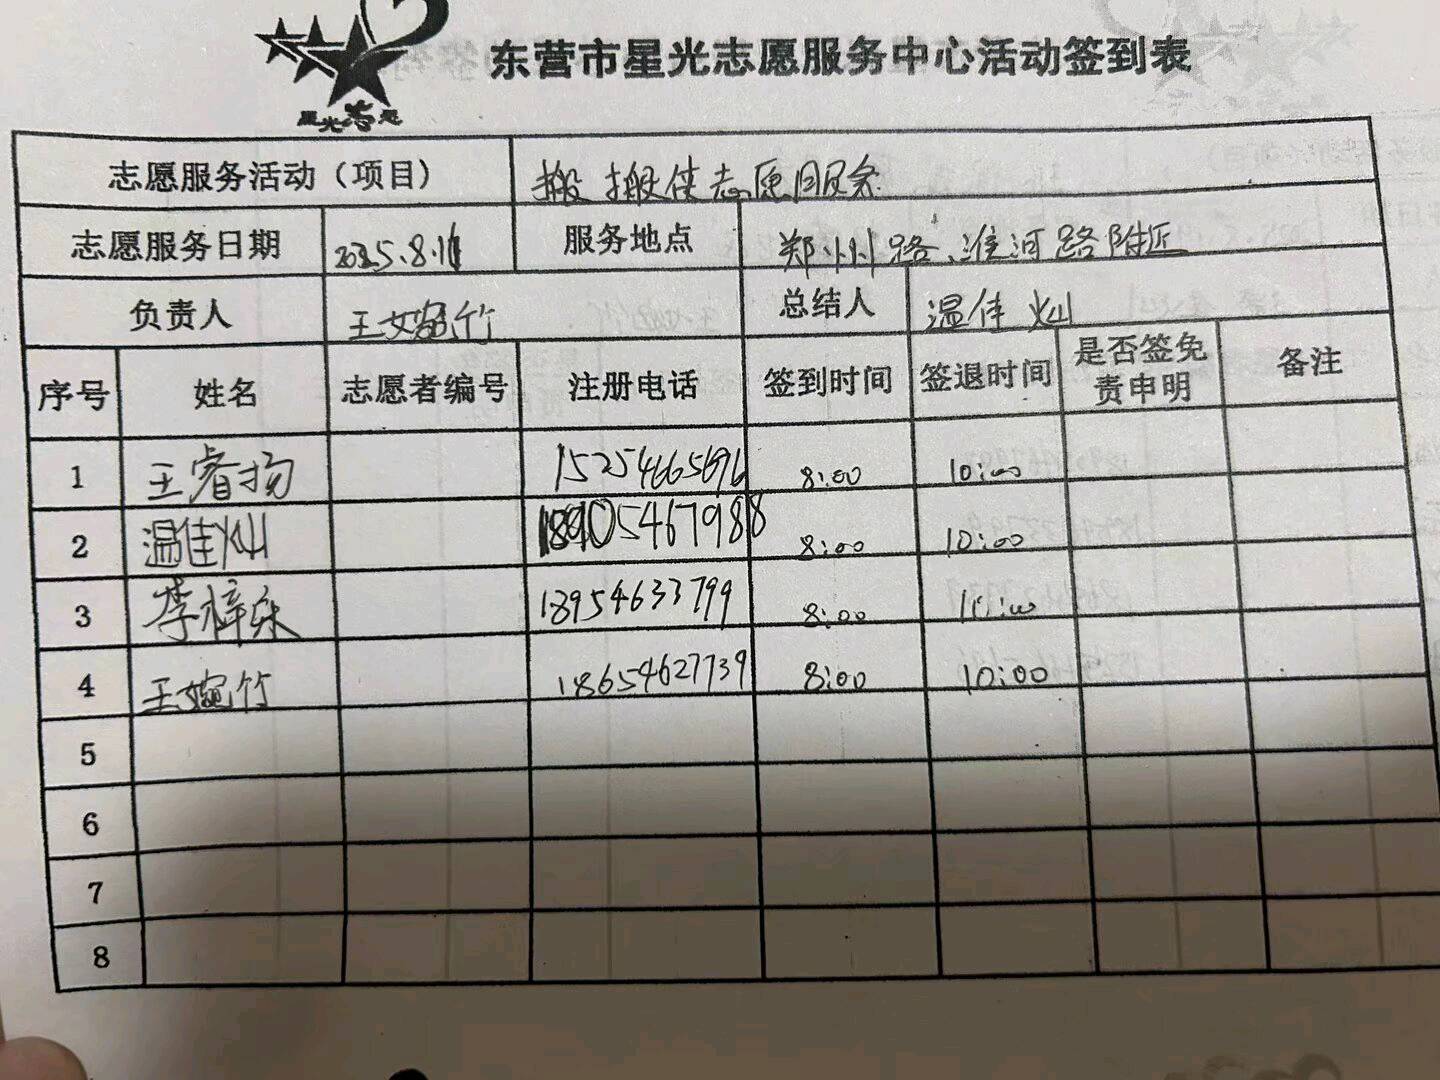 东营市星光志愿服务中心活动签到表
星光志愿
志愿服务活动（项目） 搬搬侠志愿服务
志愿服务日期 2025.8.16 服务地点 郑州路、淮河路附近
负责人 王婉竹 总结人 温佳灿
序号 姓名 志愿者编号 注册电话 签到时间 签退时间 是否签免责申明 备注
1 王睿扬 15254665696 8:00 10:00
2 温佳灿 18905467988 8:00 10:00
3 李梓 18954633799 8:00 10:00
4 王婉竹 18654627739 8:00 10:00
5
6
7
8